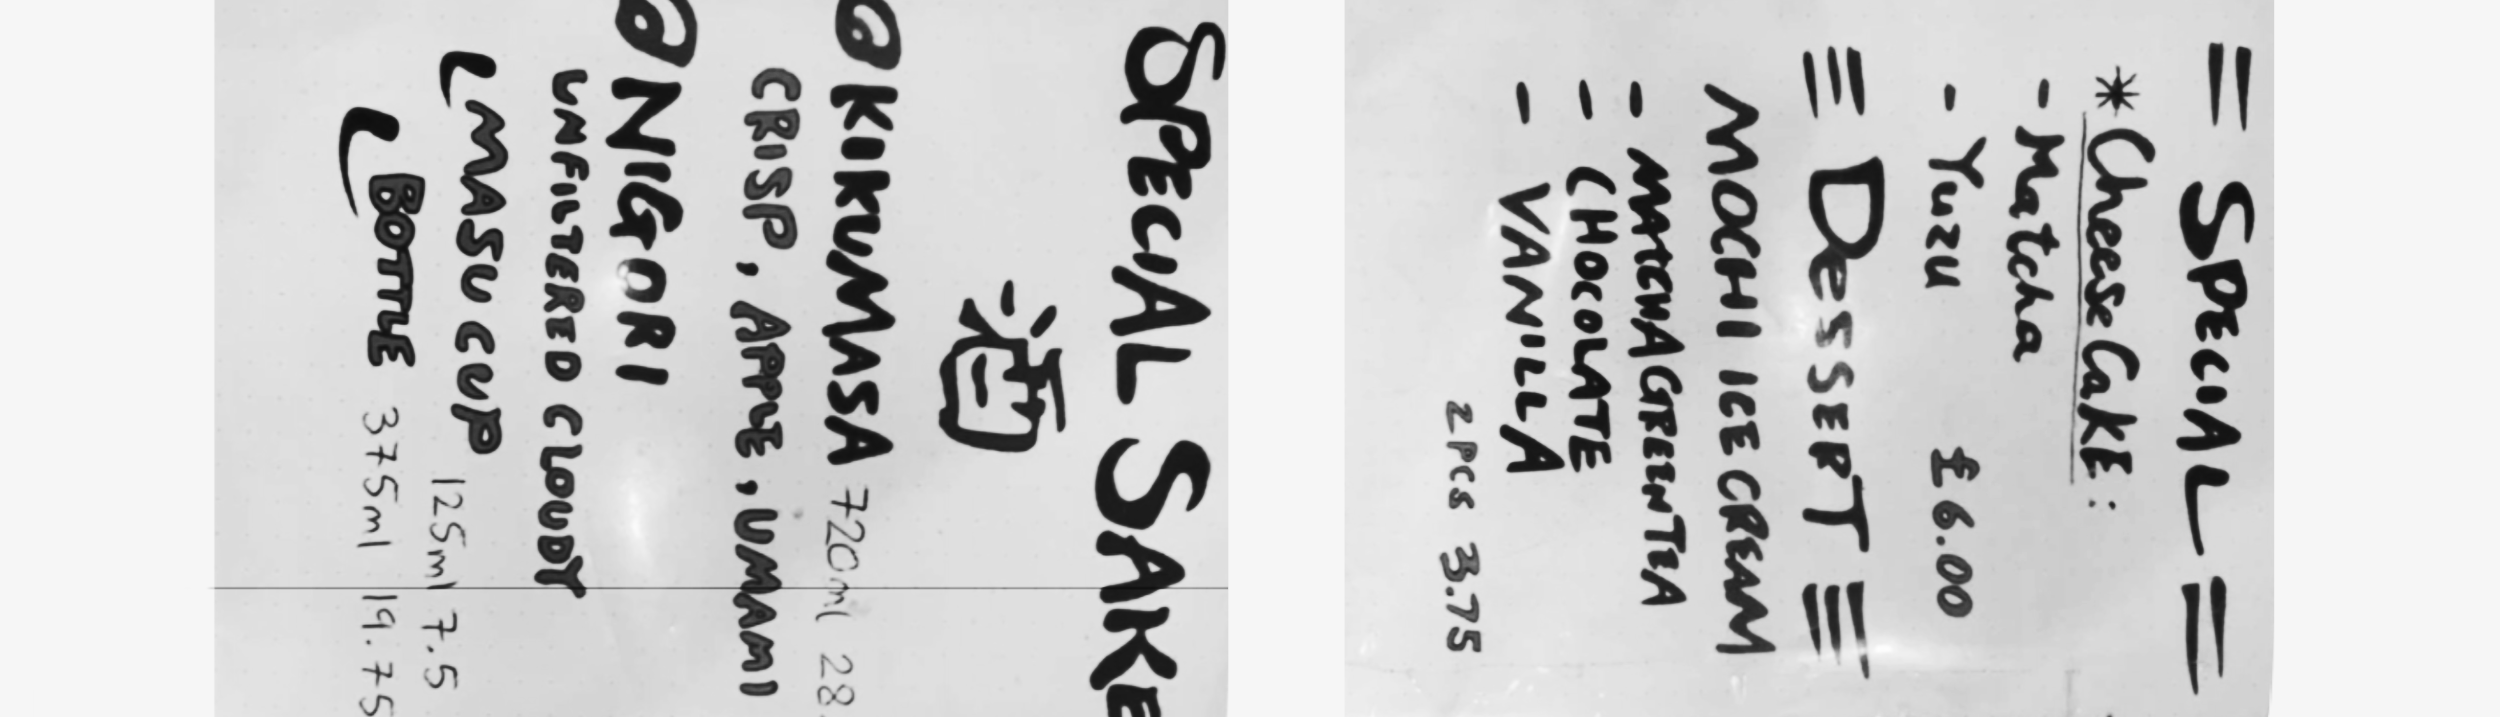 SPECIAL SAKE
酒
KIKUMASA 720ml 28.
CRISP, APPLE, UMAMI
NIGORI
UNFILTERED CLOUDY
MASU CUP 125ml 7.5
BOTTLE 375ml 19.75
= SPECIAL =
* CheeseCake:
- Matcha
- Yuzu £6.00
≡ DeSSERT ≡
MOCHI ICE CREAM
- MATCHA GREENTEA
- CHOCOLATE
- VANILLA
2 Pcs 3.75